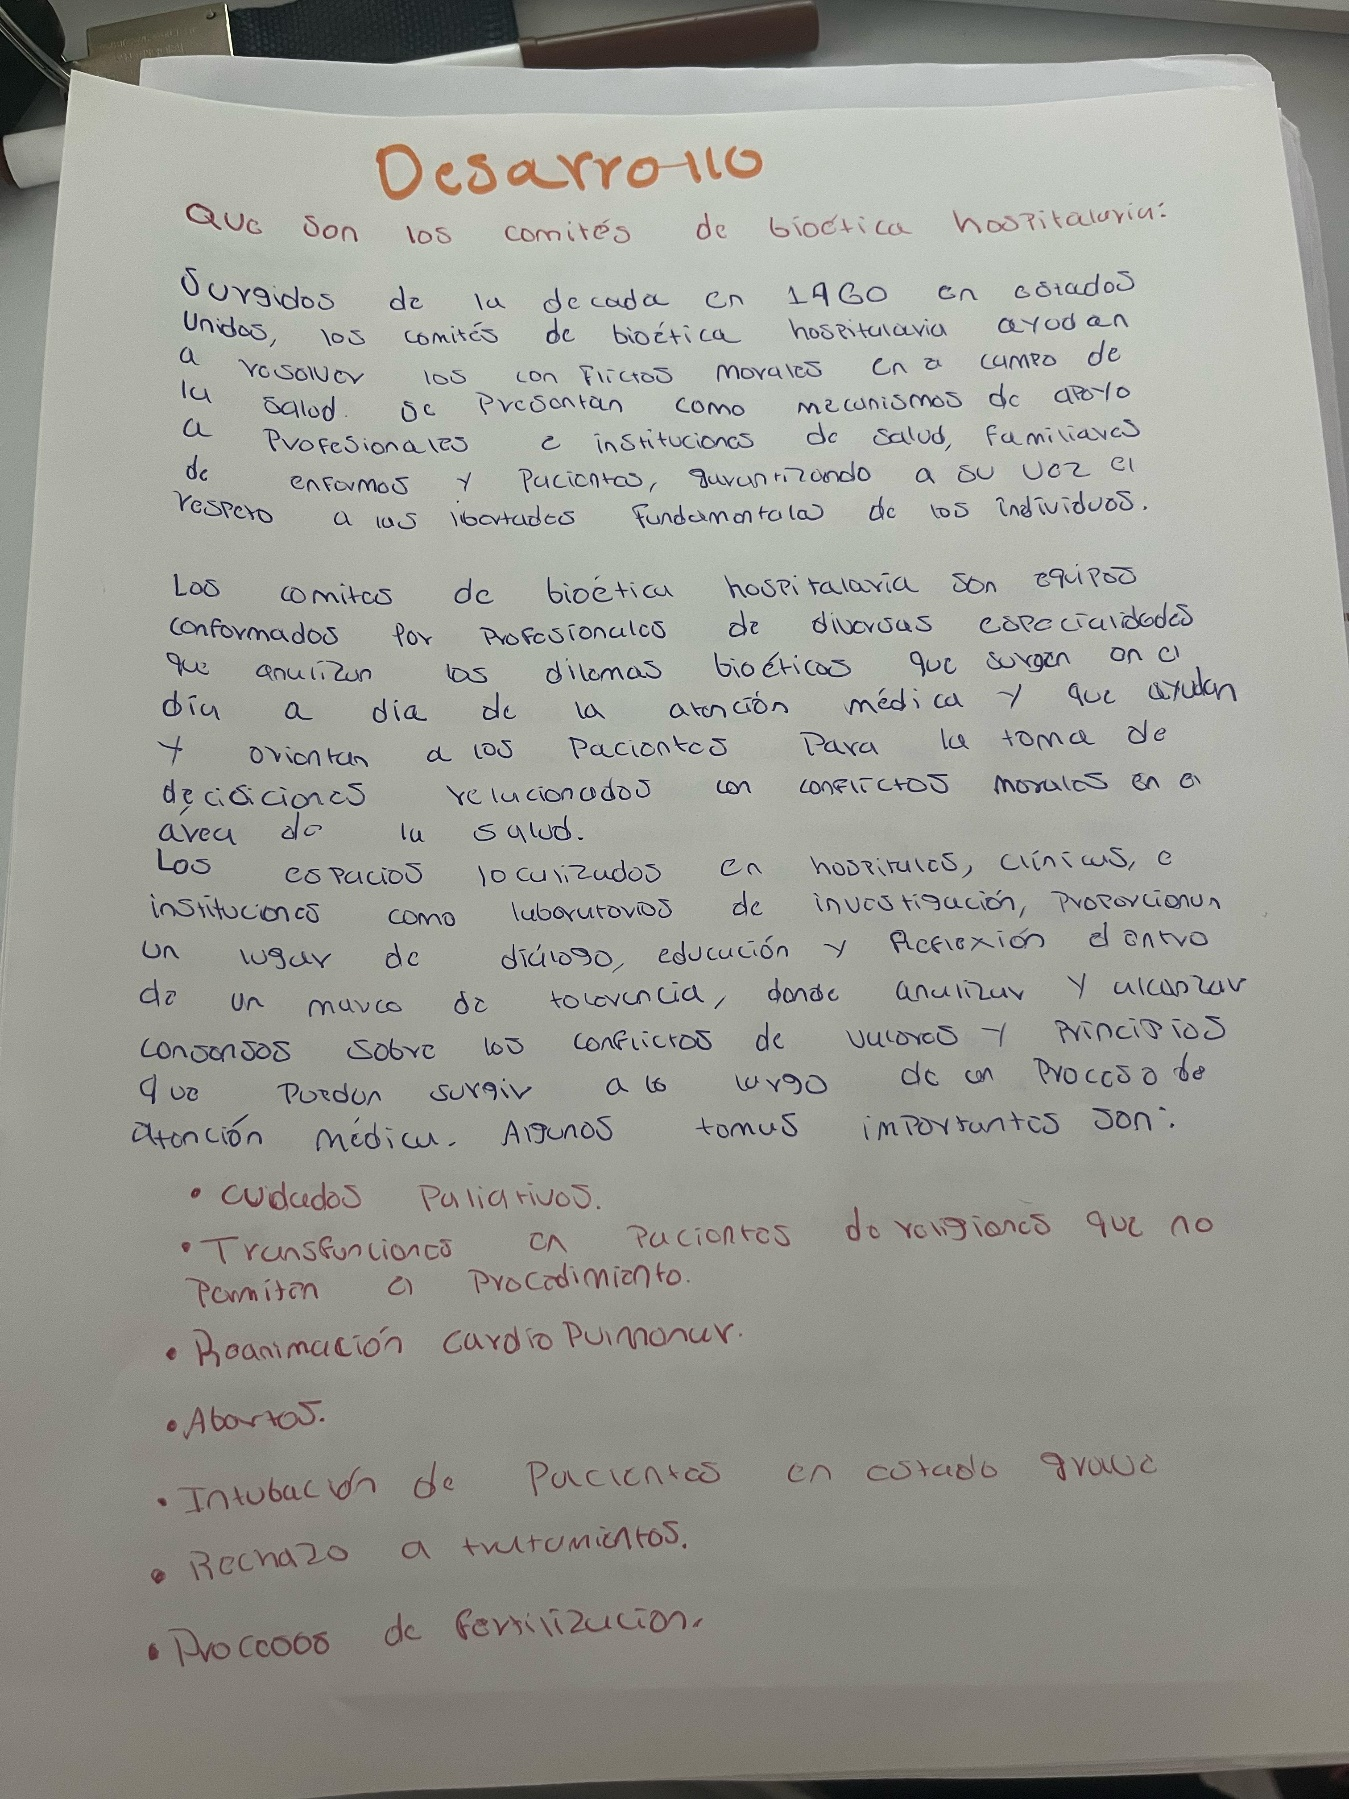 Desarrollo
Que son los comités de bioética hospitalaria:
Surgidos de la decada en 1960 en estados
Unidos, los comités de bioética hospitalaria ayudan
a resolver los conflictos morales en a campo de
la salud. se Presentan como mecanismos de apoyo
a Profesionales e instituciones de salud, familiares
de enfermos y Pacientes, garantizando a su vez el
respeto a las libertades fundamentales de los individuos.
Los comites de bioética hospitalaria son equipos
conformados por Profesionales de diversas especialidades
que analizan los dilemas bioéticos que surgen en el
día a día de la atención médica y que ayudan
y orientan a los Pacientes Para la toma de
decisiciones relacionados con conflictos morales en el
área de la salud.
Los espacios localizados en hospitales, clínicas, e
instituciones como laboratorios de investigación, Proporcionan
un lugar de diálogo, educación y Reflexión dentro
de un marco de tolerencia, donde analizar y alcanzar
consensos sobre los conflictos de valores y Principios
que Pueden surgir a lo largo de un Proceso de
atención médica. Algunos temas importantes son:
• Cuidados Paliativos.
• Transfunciones en Pacientes de religiones que no
Permiten el Procedimiento.
• Reanimación cardio Pulmonar.
• Abortos.
• Intubación de Pacientes en estado grave
• Rechazo a tratamientos.
• Procesos de fertilizacion.